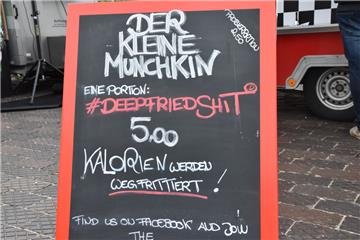 DER
KLEINE
MUNCHKIN
PROBIERPORTION
2,50
EINE PORTION:
#DEEPFRIEDSHIT
5,00
KALORIEN WERDEN
WEGFRITTIERT!
FIND US ON FACEBOOK AND JOIN
THE